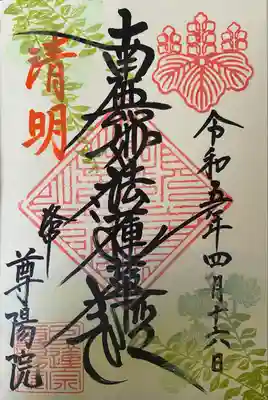 令和五年四月十六日
南無妙法蓮華經
清明
尊陽院